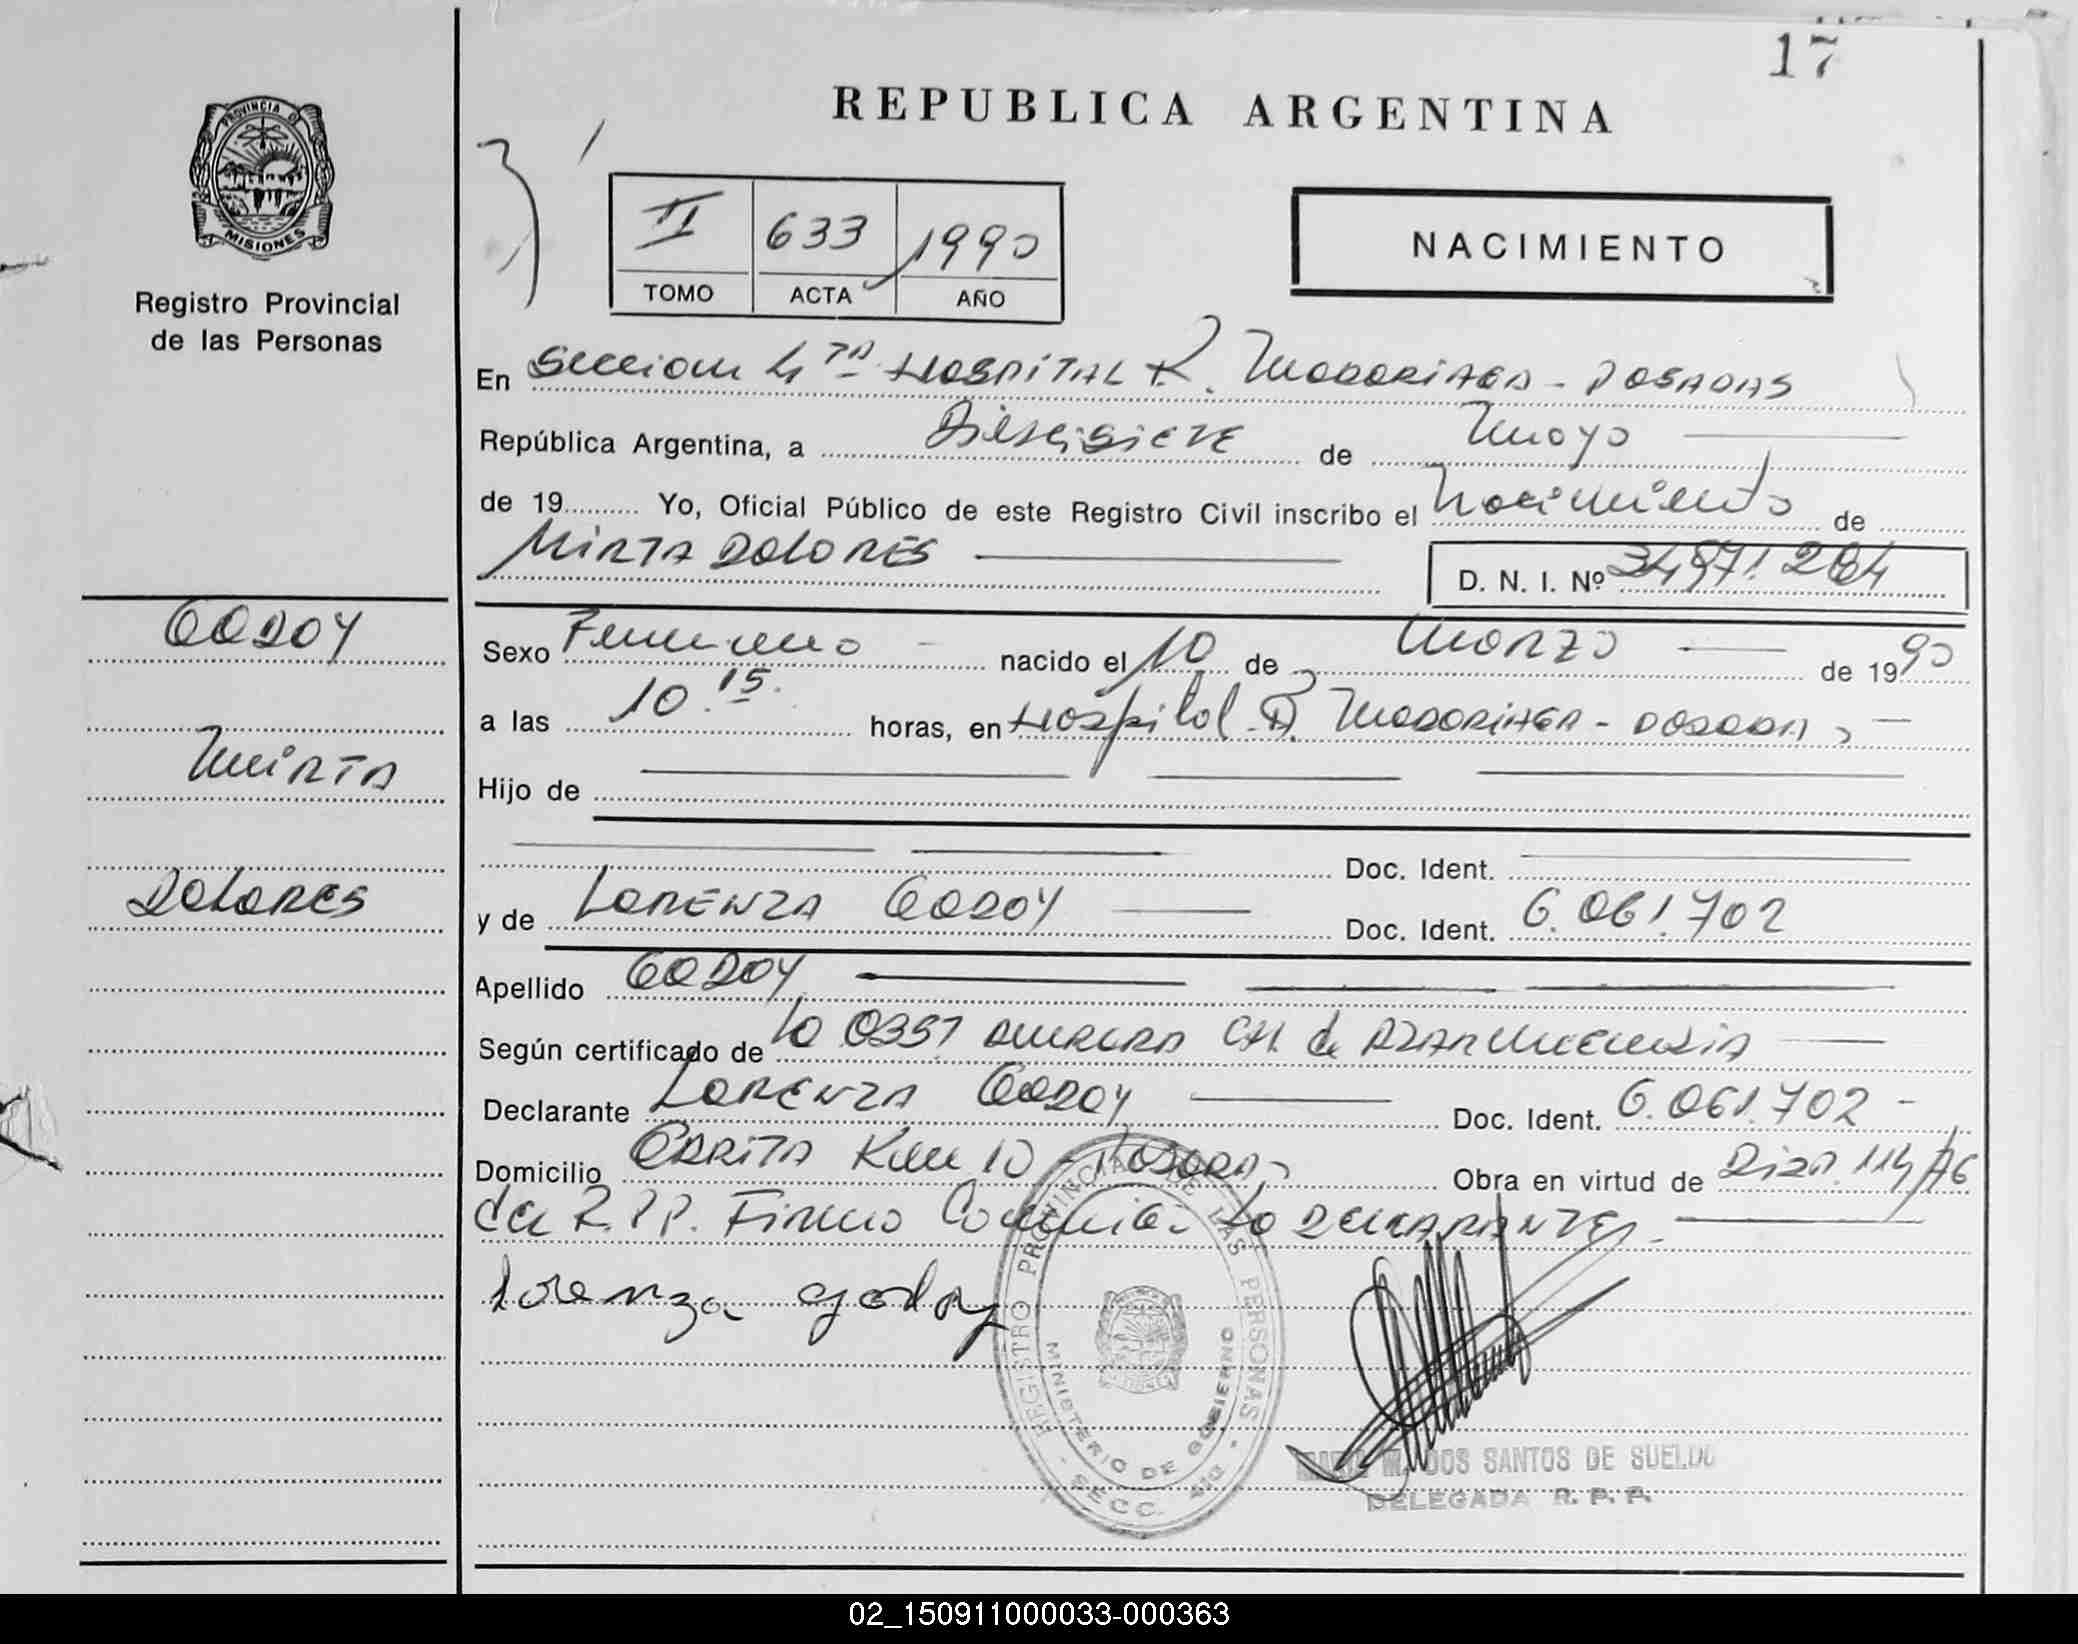 17
REPUBLICA ARGENTINA
PROVINCIA DE
MISIONES
Registro Provincial
de las Personas
II 633 1990
TOMO ACTA AÑO
NACIMIENTO
En Seccion 4TA HOSPITAL R. MADARIAGA - POSADAS
República Argentina, a Diesisiete de Mayo
de 19 Yo, Oficial Público de este Registro Civil inscribo el Nacimiento de
MIRTA DOLORES
D. N. I. Nº
GODOY
MIRTA
DOLORES
Sexo Femenino nacido el 10 de Marzo de 1990
a las 10.15. horas, en Hospital R. MADARIAGA - POSADAS
Hijo de
Doc. Ident.
y de LORENZA GODOY Doc. Ident. 6.061.702
Apellido GODOY
Según certificado de la OBST
Declarante LORENZA GODOY Doc. Ident. 6.061.702 -
Domicilio Km 10 - POSADAS Obra en virtud de Disp. 114/76
del R.P.P. Firma la DECLARANTE.
lorenza godoy
REGISTRO PROVINCIAL DE LAS PERSONAS
MINISTERIO DE GOBIERNO
SECC. 4ta
M. DOS SANTOS DE SUELDO
DELEGADA R. P. P.
02_150911000033-000363